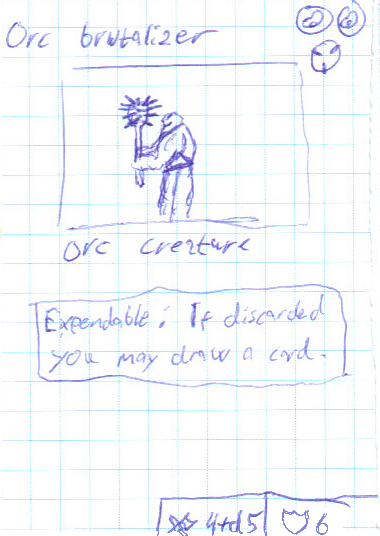 Orc brutalizer
Orc creature
Expendable: If discarded
you may draw a card.
4+d5 6